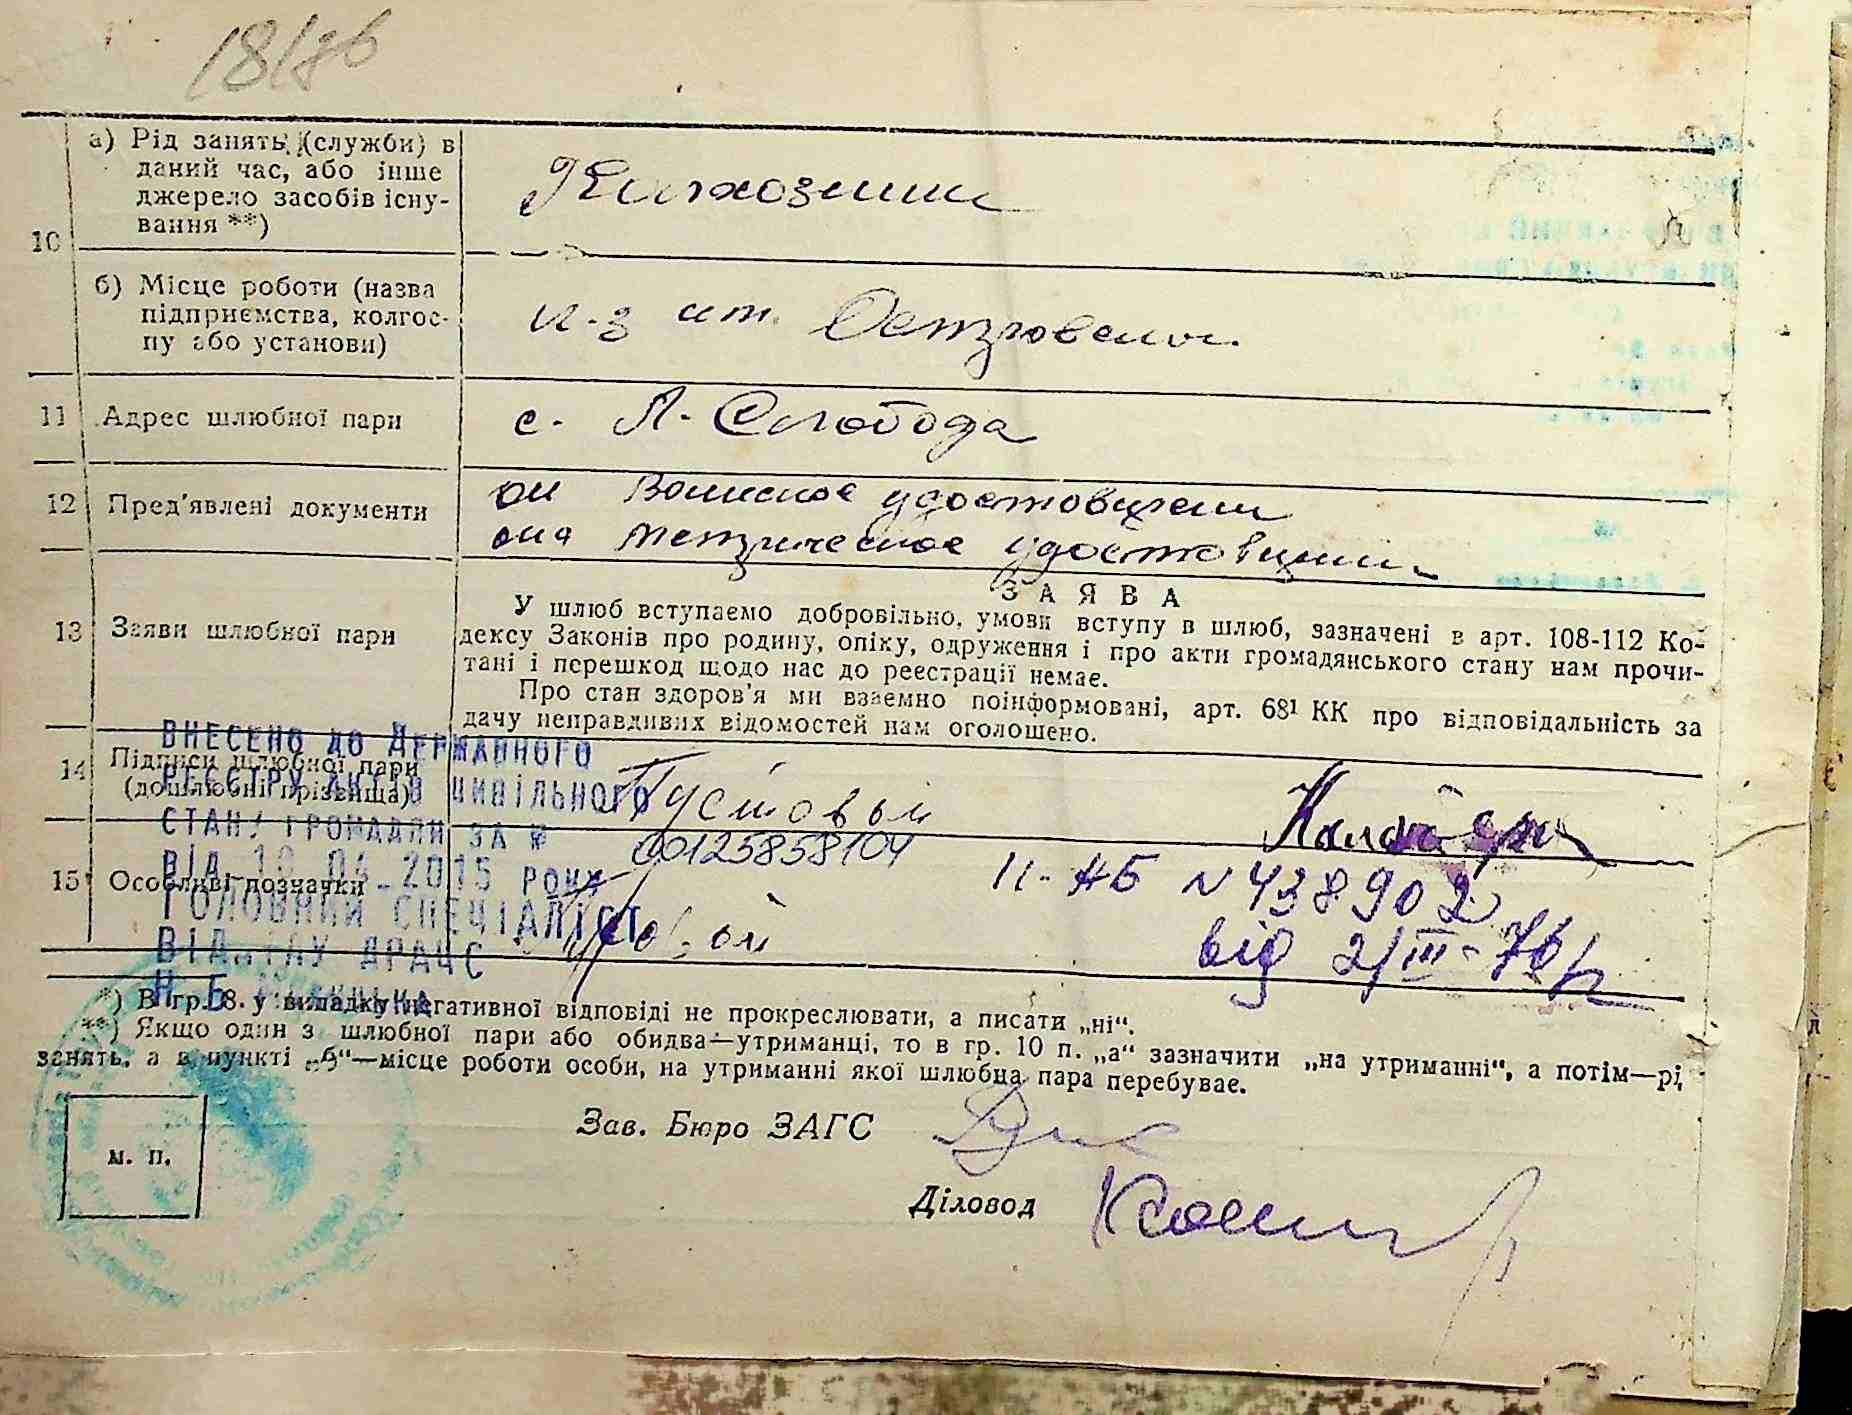 а) Рід занять (службы) в
даний час, або інше
джерело засобів існу-
вання **)
Колхозники
10
б) Місце роботи (назва
підприємства, колгос-
пу або установи)
к-з им. Островского
11 Адрес шлюбної пари
с. Л-Слобода
12 Пред'явлені документи
он Воинское удостоверении
она метрическое удостоверении
13 Заяви шлюбної пари
ЗАЯВА
У шлюб вступаємо добровільно, умови вступу в шлюб, зазначені в арт. 108-112 Ко-
дексу Законів про родину, опіку, одруження і про акти громадянського стану нам прочи-
тані і перешкод щодо нас до реєстрації немає.
Про стан здоров'я ми взаємно поінформовані, арт. 68¹ КК про відповідальність за
дачу неправдивих відомостей нам оголошено.
14 Підписи шлюбної пари
(дошлюбні прізвища)
Пустовый
ВНЕСЕНО ДО ДЕРЖАВНОГО
РЕЄСТРУ АКТІВ ЦИВІЛЬНОГО
СТАНУ ГРОМАДЯН ЗА №
00125858104
ВІД 2015 РОКУ
ГОЛОВНИЙ СПЕЦІАЛІСТ
ВІДДІЛУ ДРАЦС
Н.Б.
15 Особливі позначки
II-НБ N438902
від 2/III-76р
*) В гр. 8. у випадку негативної відповіді не прокреслювати, а писати „ні“.
**) Якщо один з шлюбної пари або обидва—утриманці, то в гр. 10 п. „а“ зазначити „на утриманні“, а потім—рі
занять, а в пункті „б“—місце роботи особи, на утриманні якої шлюбна пара перебуває.
Зав. Бюро ЗАГС
м. п.
Діловод